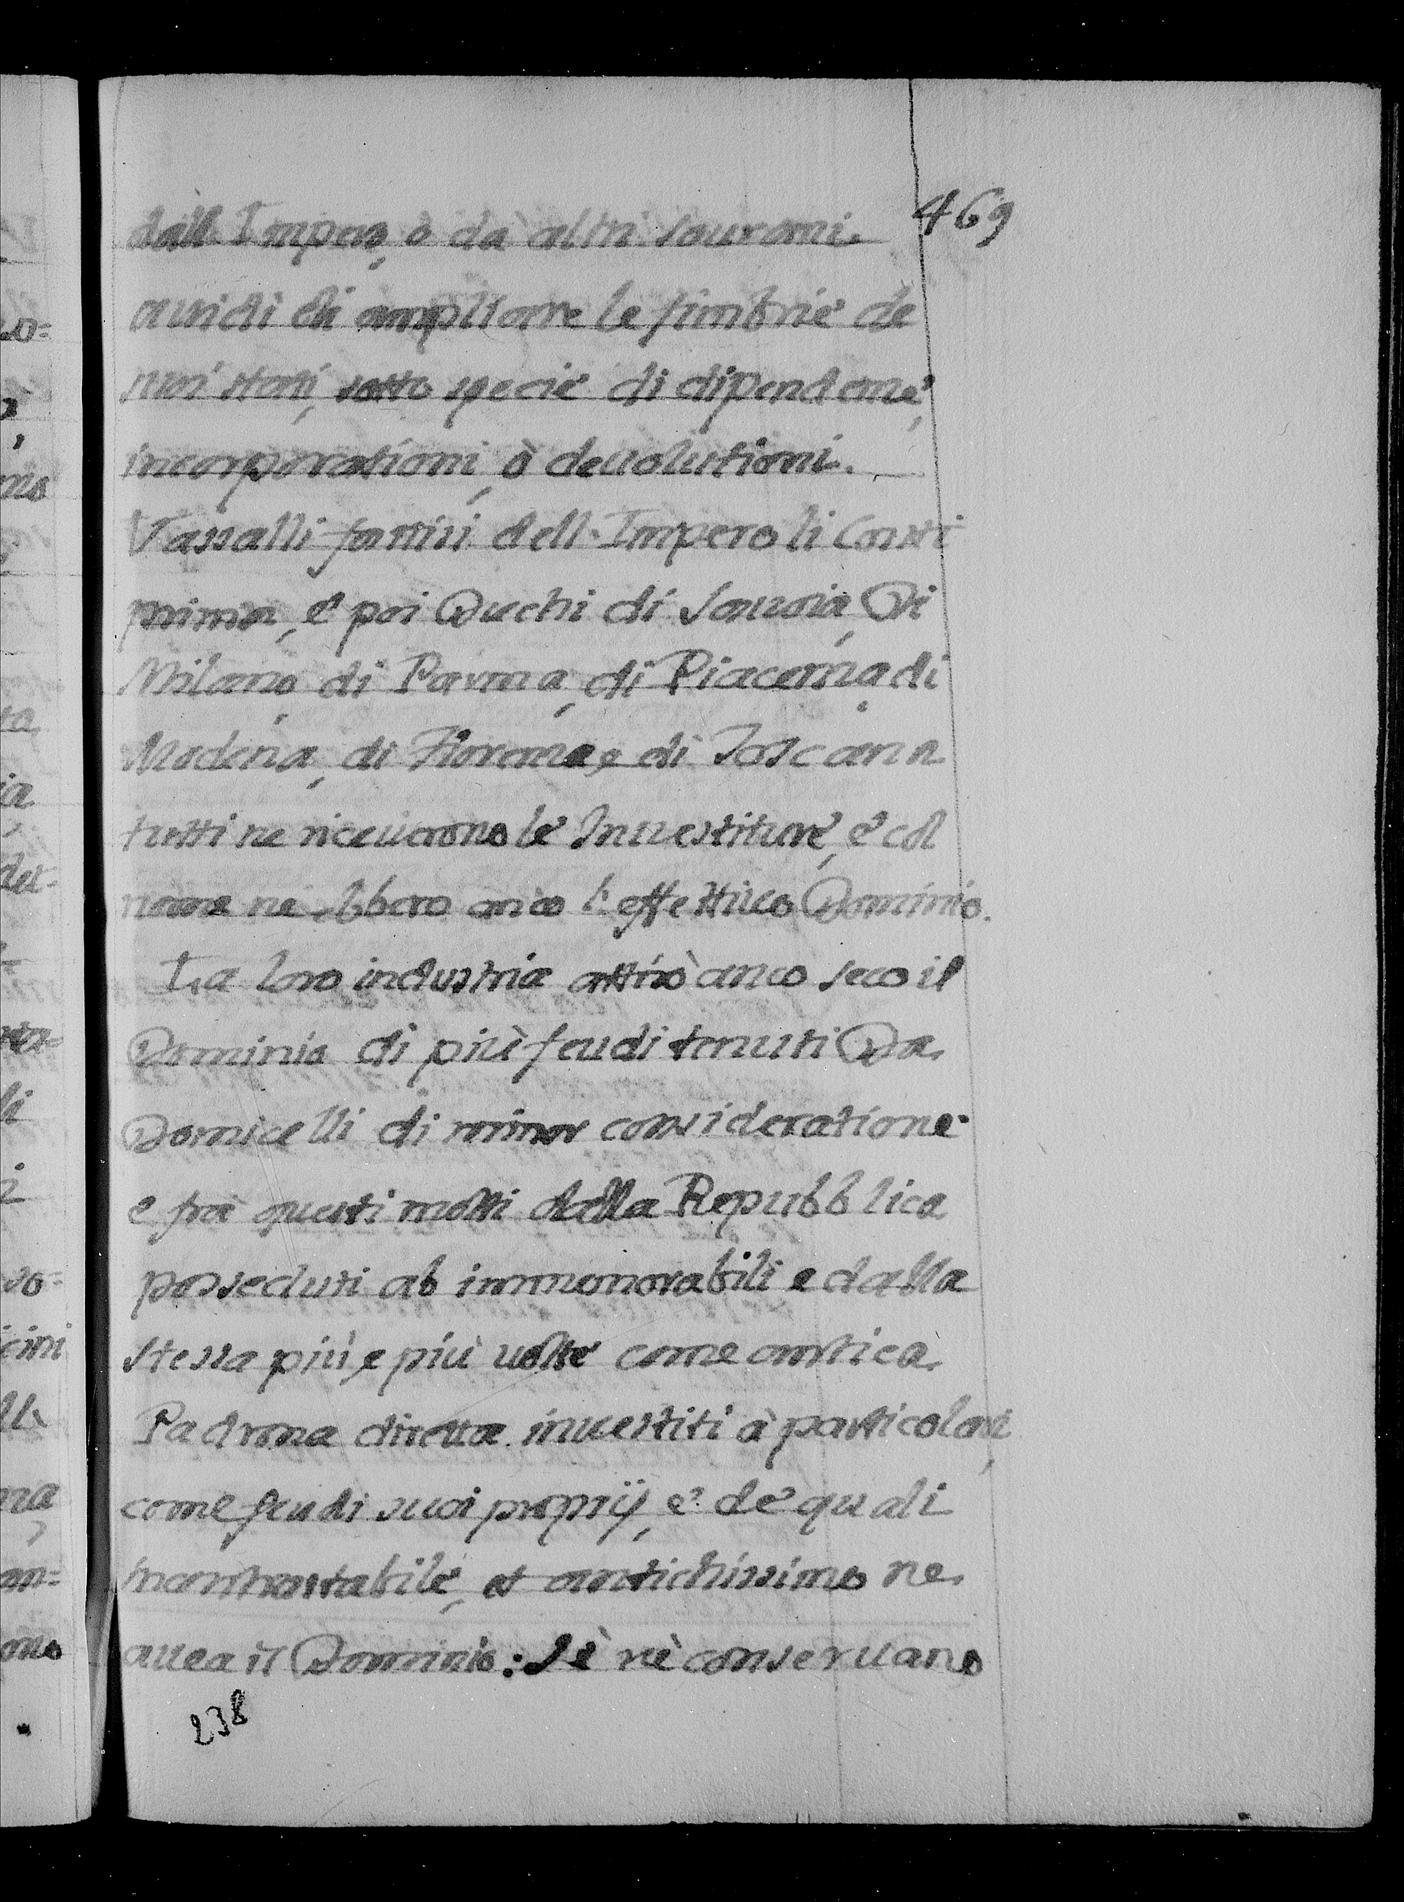 469
dall'Impero, ò dà altri sourani
auidi di ampliare le fimbrie de
suoi stati, sotto specie di dipendenze,
incorporationi, ò deuolutioni.
Vassalli fattisi dell'Impero li Conti
prima, e poi Duchi di Sauoia, Di
Milano, di Parma, di Piacenza, di
Modena, di Fiorenza, e di Toscana
tutti ne riceuerono le Inuestiture, e col
nome ne ebbero anco l'effettiuo Dominio.
La loro industria attirò anco seco il
Dominio di più feudi tenuti Da
Domicelli di minor consideratione
e frà questi molti dalla Repubblica
posseduti ab immemorabili e dalla
stessa più, e più uolte come antica
Padrona diretta inuestiti à particolari,
come feudi suoi proprij, e de quali
incontrastabile, et antichissimo ne
auea il Dominio: Sè nè conseruano
238